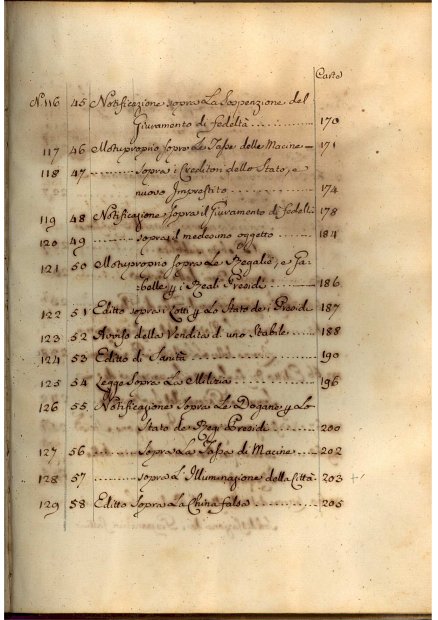 Carte
N.º 116 45 Notificazione sopra La Sospenzione del
Giuramento di fedeltà ........... 170
117 46 Motuproprio sopra Le Tasse delle Macine — 171
118 47 ........ sopra i Creditori dello Stato, e
nuovo Imprestito ........... 174
119 48 Notificazione sopra il Giuramento di fedeltà 178
120 49 ........ sopra il medesimo oggetto ........ 184
121 50 Motuproprio sopra Le Regalie, e Ga-
belle p i Reali Presidi ........ 186
122 51 Editto sopra i Lotti p Lo Stato de i Presidi 187
123 52 Avviso della Vendita di uno Stabile ..... 188
124 53 Editto di Sanità ........... 190
125 54 Legge Sopra La Milizia ........ 196
126 55 Notificazione Sopra Le Dogane p Lo
Stato de Regi Presidi ........ 200
127 56 ........ Sopra La Tassa di Macine ... 202
128 57 ........ sopra L'Illuminazione della Città 203 +
129 58 Editto Sopra La China falsa ........ 205